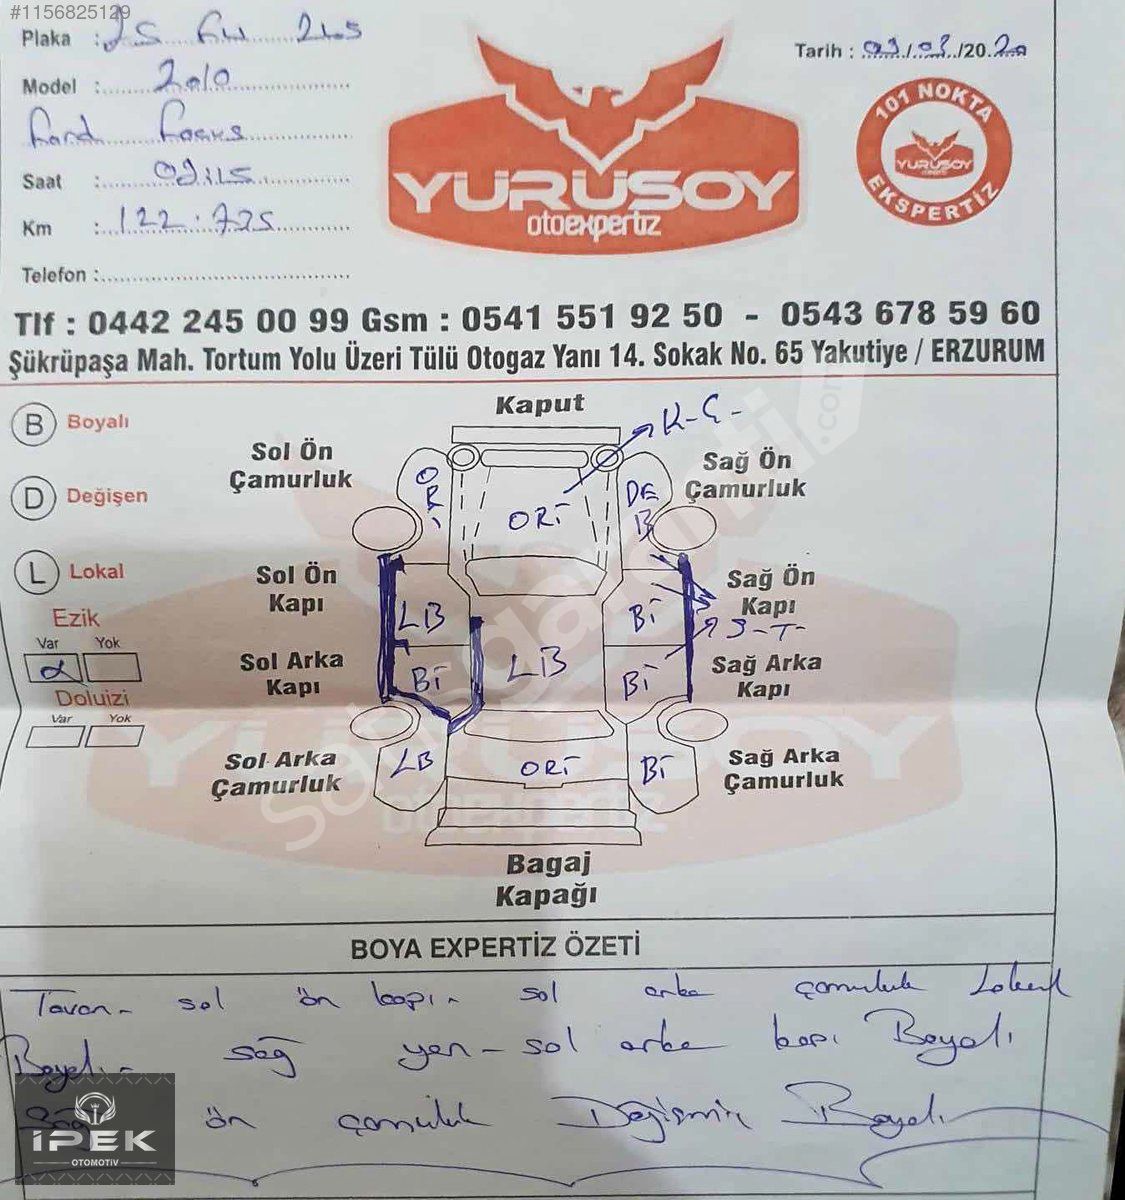 #1156825129
Plaka :
Model : 2010
Ford Focus
Saat : 09:15
Km : 122.775
Telefon :
YURUSOY
otoexpertiz
Tarih : 03/03/2020
101 NOKTA
YURUSOY
EKSPERTİZ
Tlf : 0442 245 00 99 Gsm : 0541 551 92 50 - 0543 678 59 60
Şükrüpaşa Mah. Tortum Yolu Üzeri Tülü Otogaz Yanı 14. Sokak No. 65 Yakutiye / ERZURUM
B Boyalı
D Değişen
L Lokal
Ezik
Var Yok
Doluizi
Var Yok
Kaput
K-Ç-
Sol Ön
Çamurluk
Sağ Ön
Çamurluk
ORİ
ORİ
DEB
Sol Ön
Kapı
Sağ Ön
Kapı
LB
Bİ
S-T-
Sol Arka
Kapı
Sağ Arka
Kapı
Bİ
LB
Bİ
Sol Arka
Çamurluk
Sağ Arka
Çamurluk
LB
ORİ
Bİ
Bagaj
Kapağı
sahibinden.com
YURUSOY
otoexpertiz
BOYA EXPERTİZ ÖZETİ
Tavan- sol ön kapı- sol arka çamurluk Lokal
Boyalı- sağ yan- sol arka kapı Boyalı
Sağ ön çamurluk Değişmiş Boyalı
İPEK
OTOMOTİV